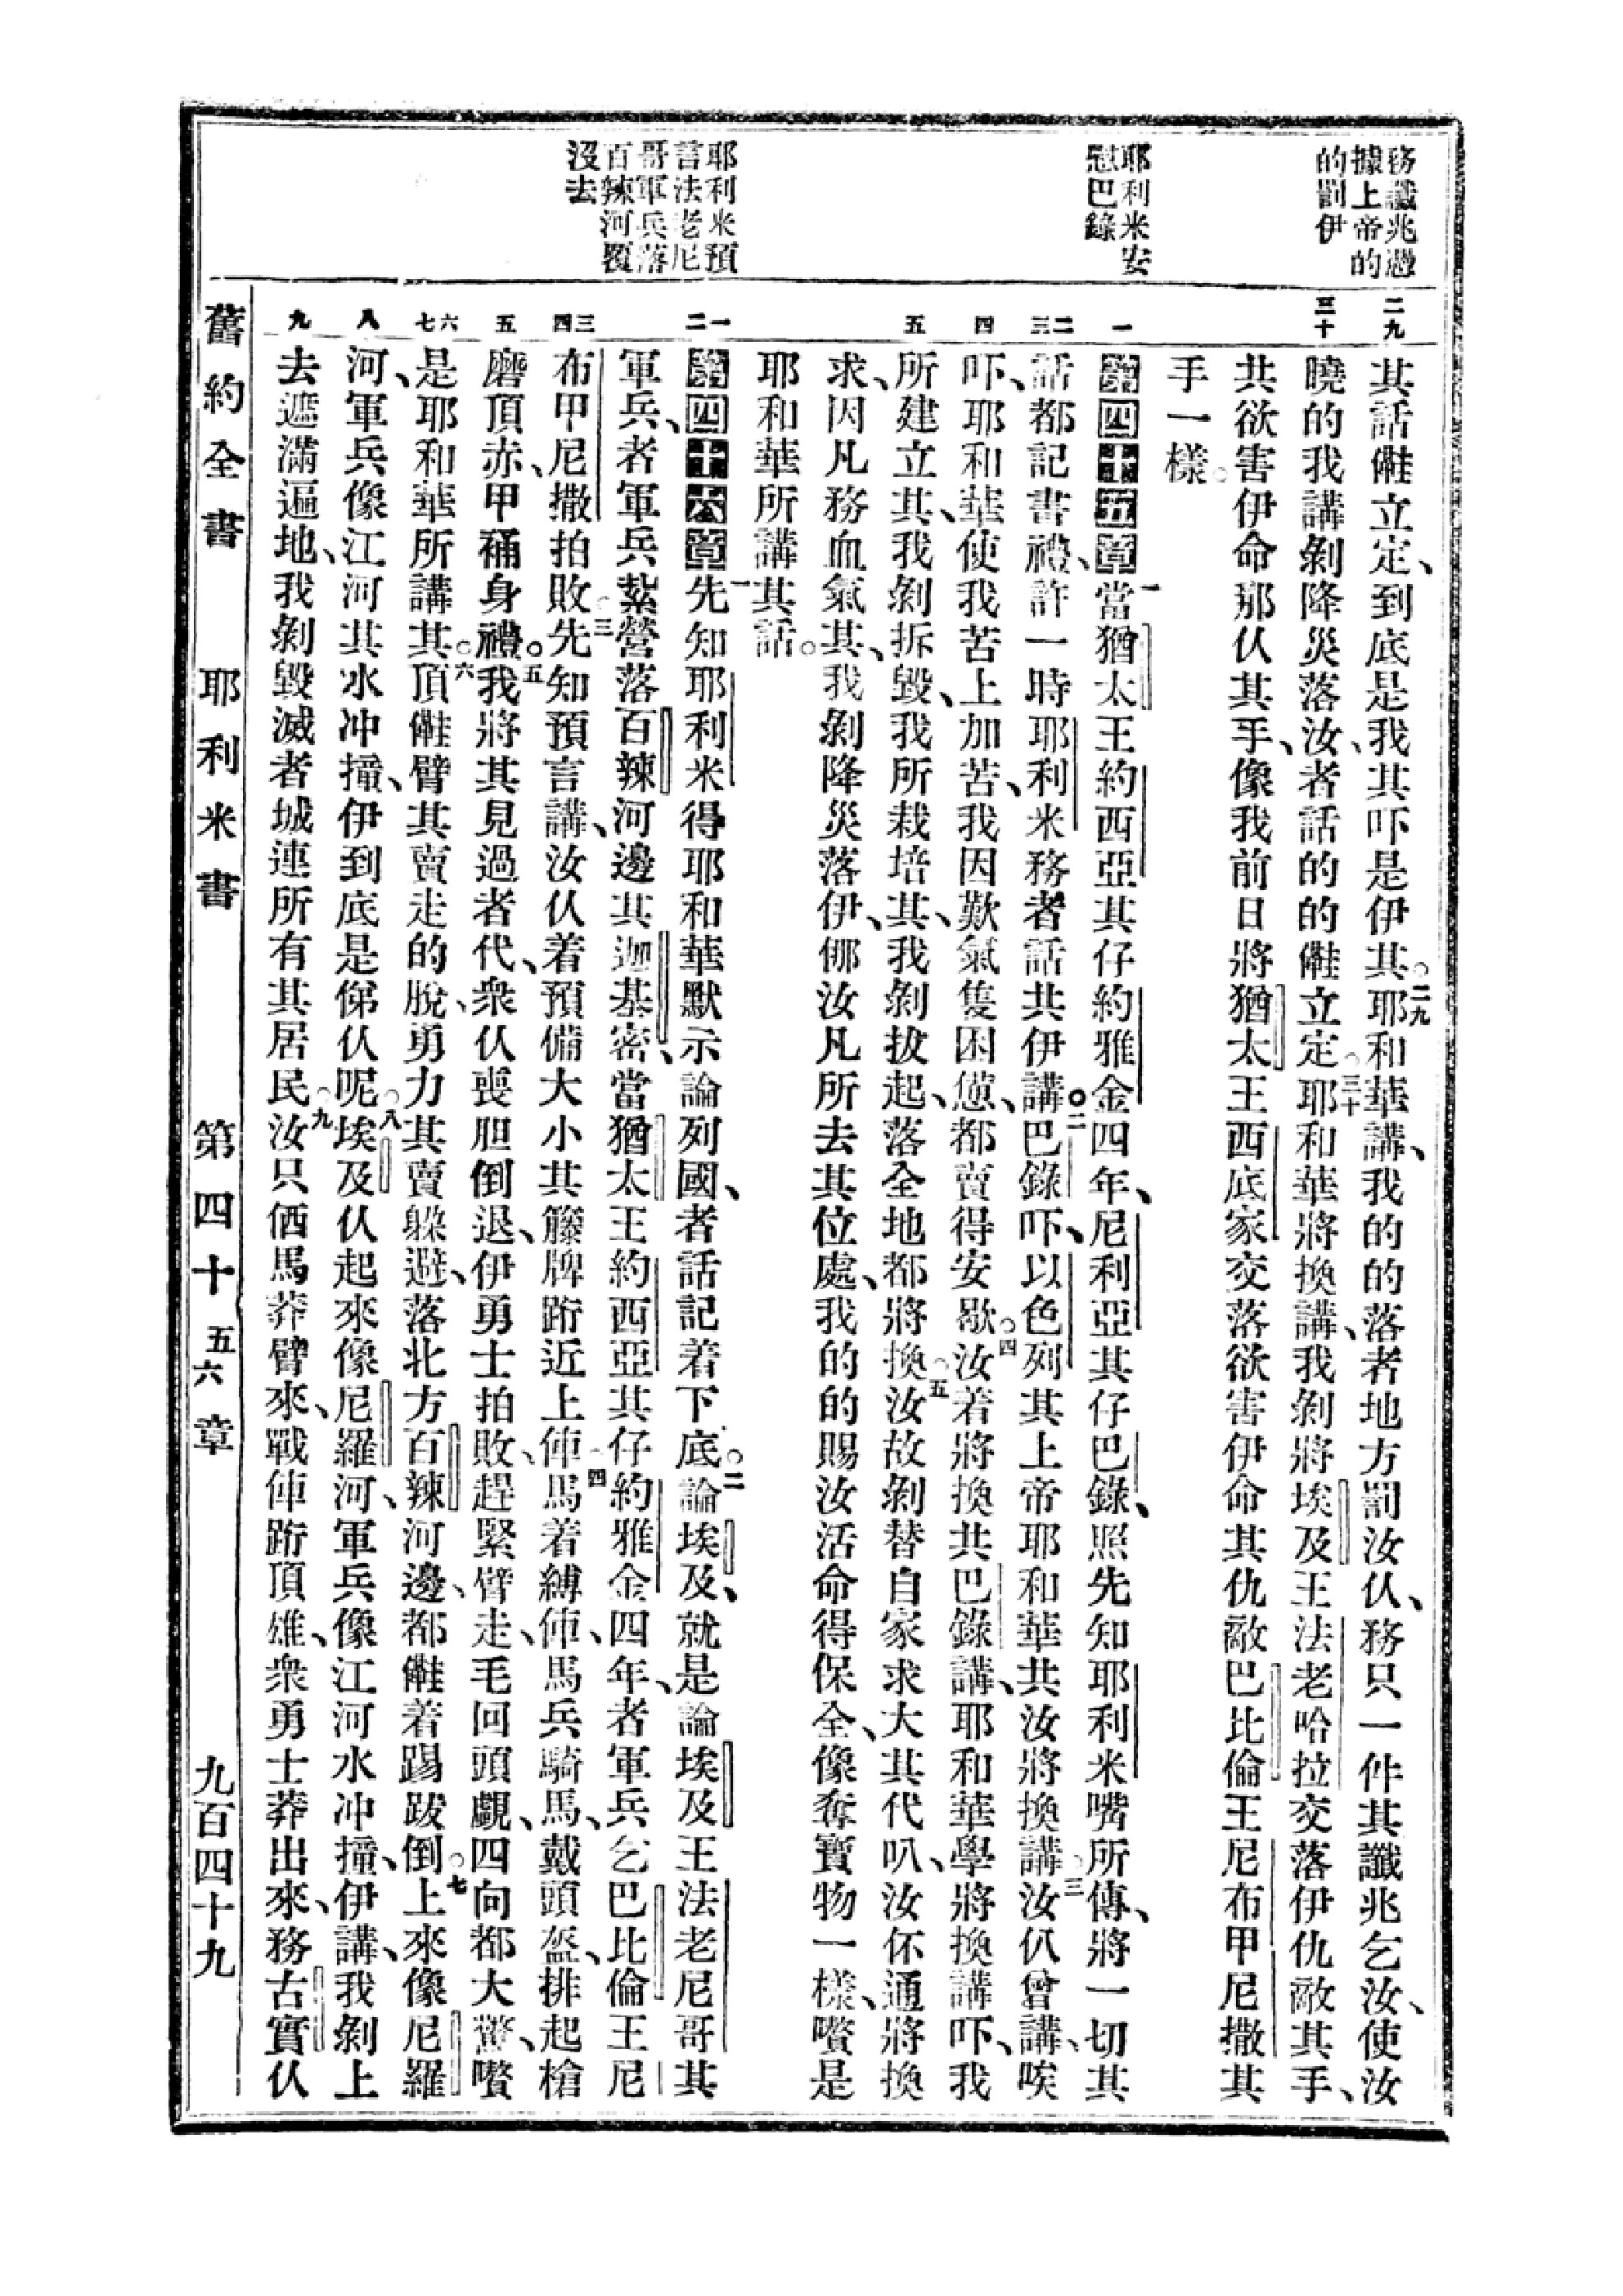 務讖兆憑
據上帝的
的罰伊
耶利米安
慰巴錄
耶利米預
言法老尼
哥軍兵落
百辣河覆
沒去
二九
三十
一
二
三
四
五
一
二
三
四
五
六
七
八
九
其話儺立定、到底是我其吓是伊其。二九耶和華講、我的的落者地方罰汝仈、務只一件其讖兆乞汝、使汝
曉的我講剝降災落汝、者話的的儺立定。三十耶和華將換講、我剝將埃及王法老哈拉交落伊仇敵其手、
共欲害伊命那仈其手、像我前日將猶太王西底家交落欲害伊命其仇敵巴比倫王尼布甲尼撒其
手一樣。
第四十五章一當猶太王約西亞其仔約雅金四年、尼利亞其仔巴錄、照先知耶利米嘴所傳、將一切其
話都記書禮、許一時耶利米務者話共伊講。二巴錄吓、以色列其上帝耶和華共汝將換講。三汝仈曾講、唉
吓、耶和華使我苦上加苦、我因歎氣隻困憊、都賣得安歇。四汝着將換共巴錄講、耶和華學將換講吓、我
所建立其、我剝拆毀、我所栽培其、我剝拔起、落全地都將換。五汝故剝替自家求大其代叭、汝伓通將換
求、因凡務血氣其、我剝降災落伊、挪汝凡所去其位處、我的的賜汝活命得保全、像奪寶物一樣、嚽是
耶和華所講其話。
第四十六章一先知耶利米得耶和華默示論列國、者話記着下底。二論埃及、就是論埃及王法老尼哥其
軍兵、者軍兵紮營落百辣河邊其迦基密、當猶太王約西亞其仔約雅金四年、者軍兵乞巴比倫王尼
布甲尼撒拍敗。三先知預言講、汝仈着預備大小其籐牌跘近上陣。四馬着縛俥、馬兵騎馬、戴頭盔、排起槍
磨頂赤、甲裲身禮。五我將其見過者代、衆仈喪胆倒退、伊勇士拍敗、趕緊臂走、毛回頭覷、四向都大驚、嚽
是耶和華所講其。六頂儺臂其賣走的脫、勇力其賣躲避、落北方百辣河邊、都儺着踢跋倒。七上來像尼羅
河、軍兵像江河其水冲撞、伊到底是俤仈呢。八埃及仈起來像尼羅河、軍兵像江河水冲撞、伊講、我剝上
去遮滿遍地、我剝毀滅者城連所有其居民。九汝只佰馬莽臂來、戰俥跘頂雄、衆勇士莽出來、務古實仈
舊約全書　耶利米書　第四十五六章　九百四十九